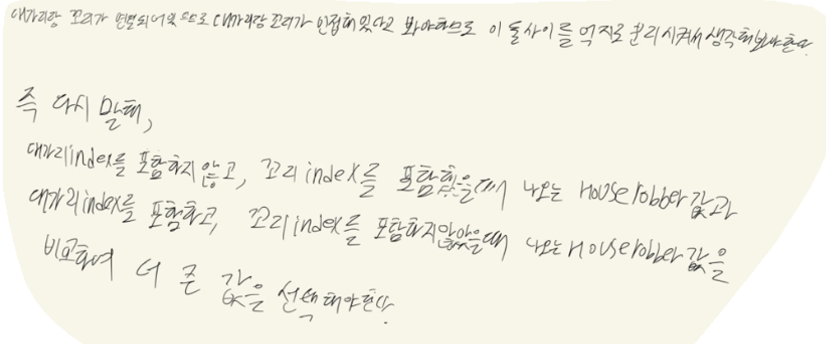 대가리랑 꼬리가 연결되어있으므로 대가리랑 꼬리가 인접해있다고 봐야하므로 이 둘사이를 억지로 분리시켜서 생각해봐야한다.
즉 다시 말해,
대가리index를 포함하지 않고, 꼬리index를 포함했을때 나오는 House robber값과
대가리index를 포함하고, 꼬리index를 포함하지않았을때 나오는 House robber값을
비교하여 더 큰 값을 선택해야한다.